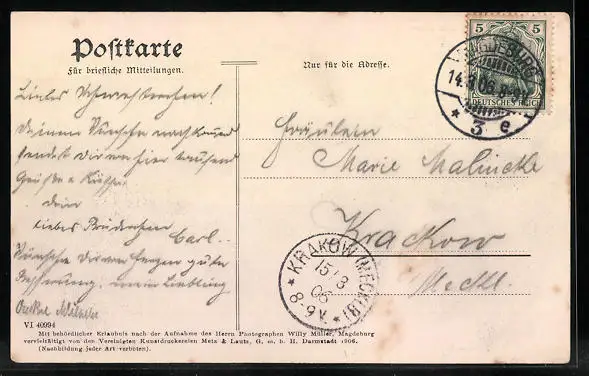 Postkarte
Für briefliche Mitteilungen.
Nur für die Adresse.
5 5
DEUTSCHES REICH
MAGDEBURG
14.3.06.8-9
* 3 e
Liebes Schwesterchen!
Deinem Wunsche nachkommend
sendet dir von hier tausend
Grüße & Küsse
dein
liebes Brüderchen
Carl.
Wünsche dir von Herzen gute
Besserung, mein Liebling
Fräulein
Marie Malincke
Krackow
Meckl.
* KRAKOW (MECKLB) *
15/3
06
8-9V.
VI 40994
Mit behördlicher Erlaubnis nach der Aufnahme des Herrn Photographen Willy Müller, Magdeburg
vervielfältigt von den Vereinigten Kunstdruckereien Metz & Lautz, G. m. b. H. Darmstadt 1906.
(Nachbildung jeder Art verboten).